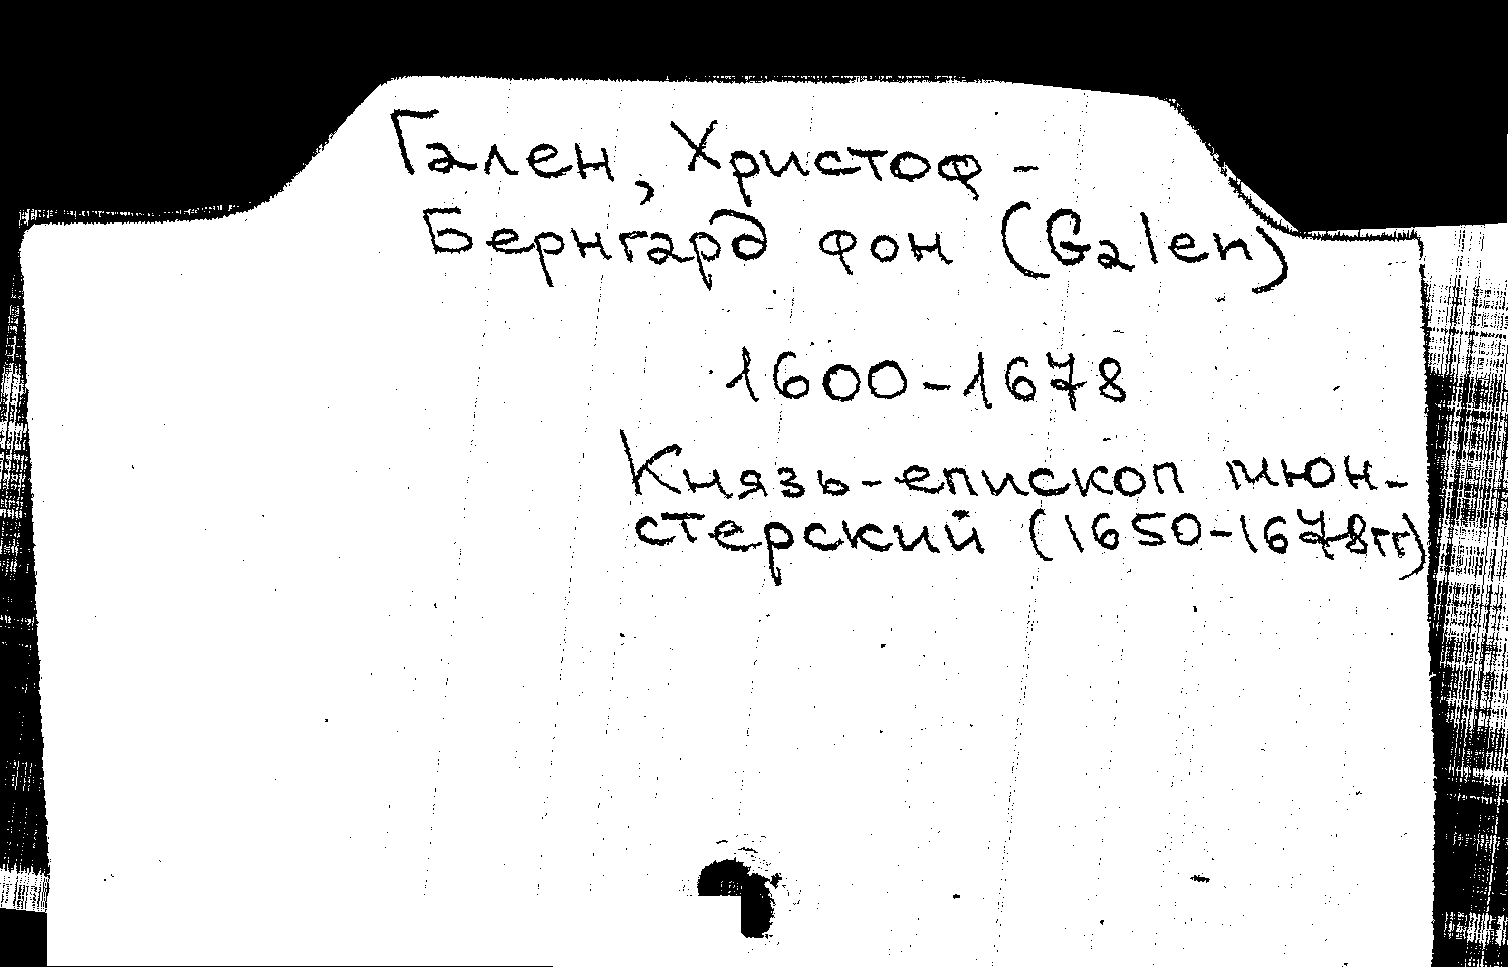 Гален, Христоф -
Бернгард фон (Galen)
1600-1678
Князь-епископ мюн-
стерский (1650-1678гг)